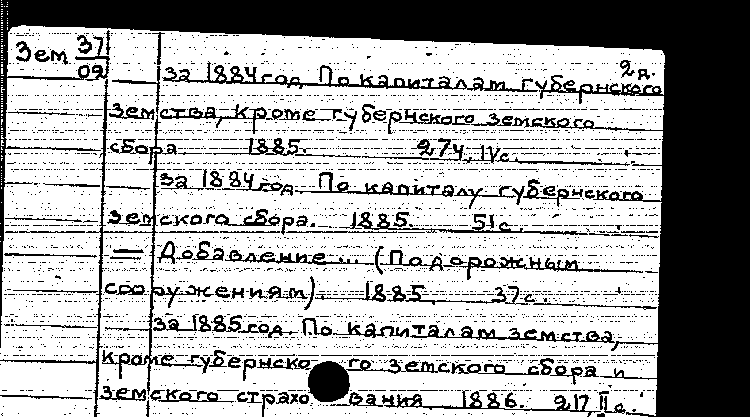 Зем 37/09
2д.
— за 1884 год. По капиталам губернского
земства, кроме губернского земского
сбора 1885. 274, IV с.
за 1884 год. По капиталу губернского
земского сбора. 1885. 51 с.
— Добавление ... (По дорожным
сооружениям). 1885. 37 с.
за 1885 год. По капиталам земства,
кроме губернского земского сбора и
земского страхования 1886. 217, II с.